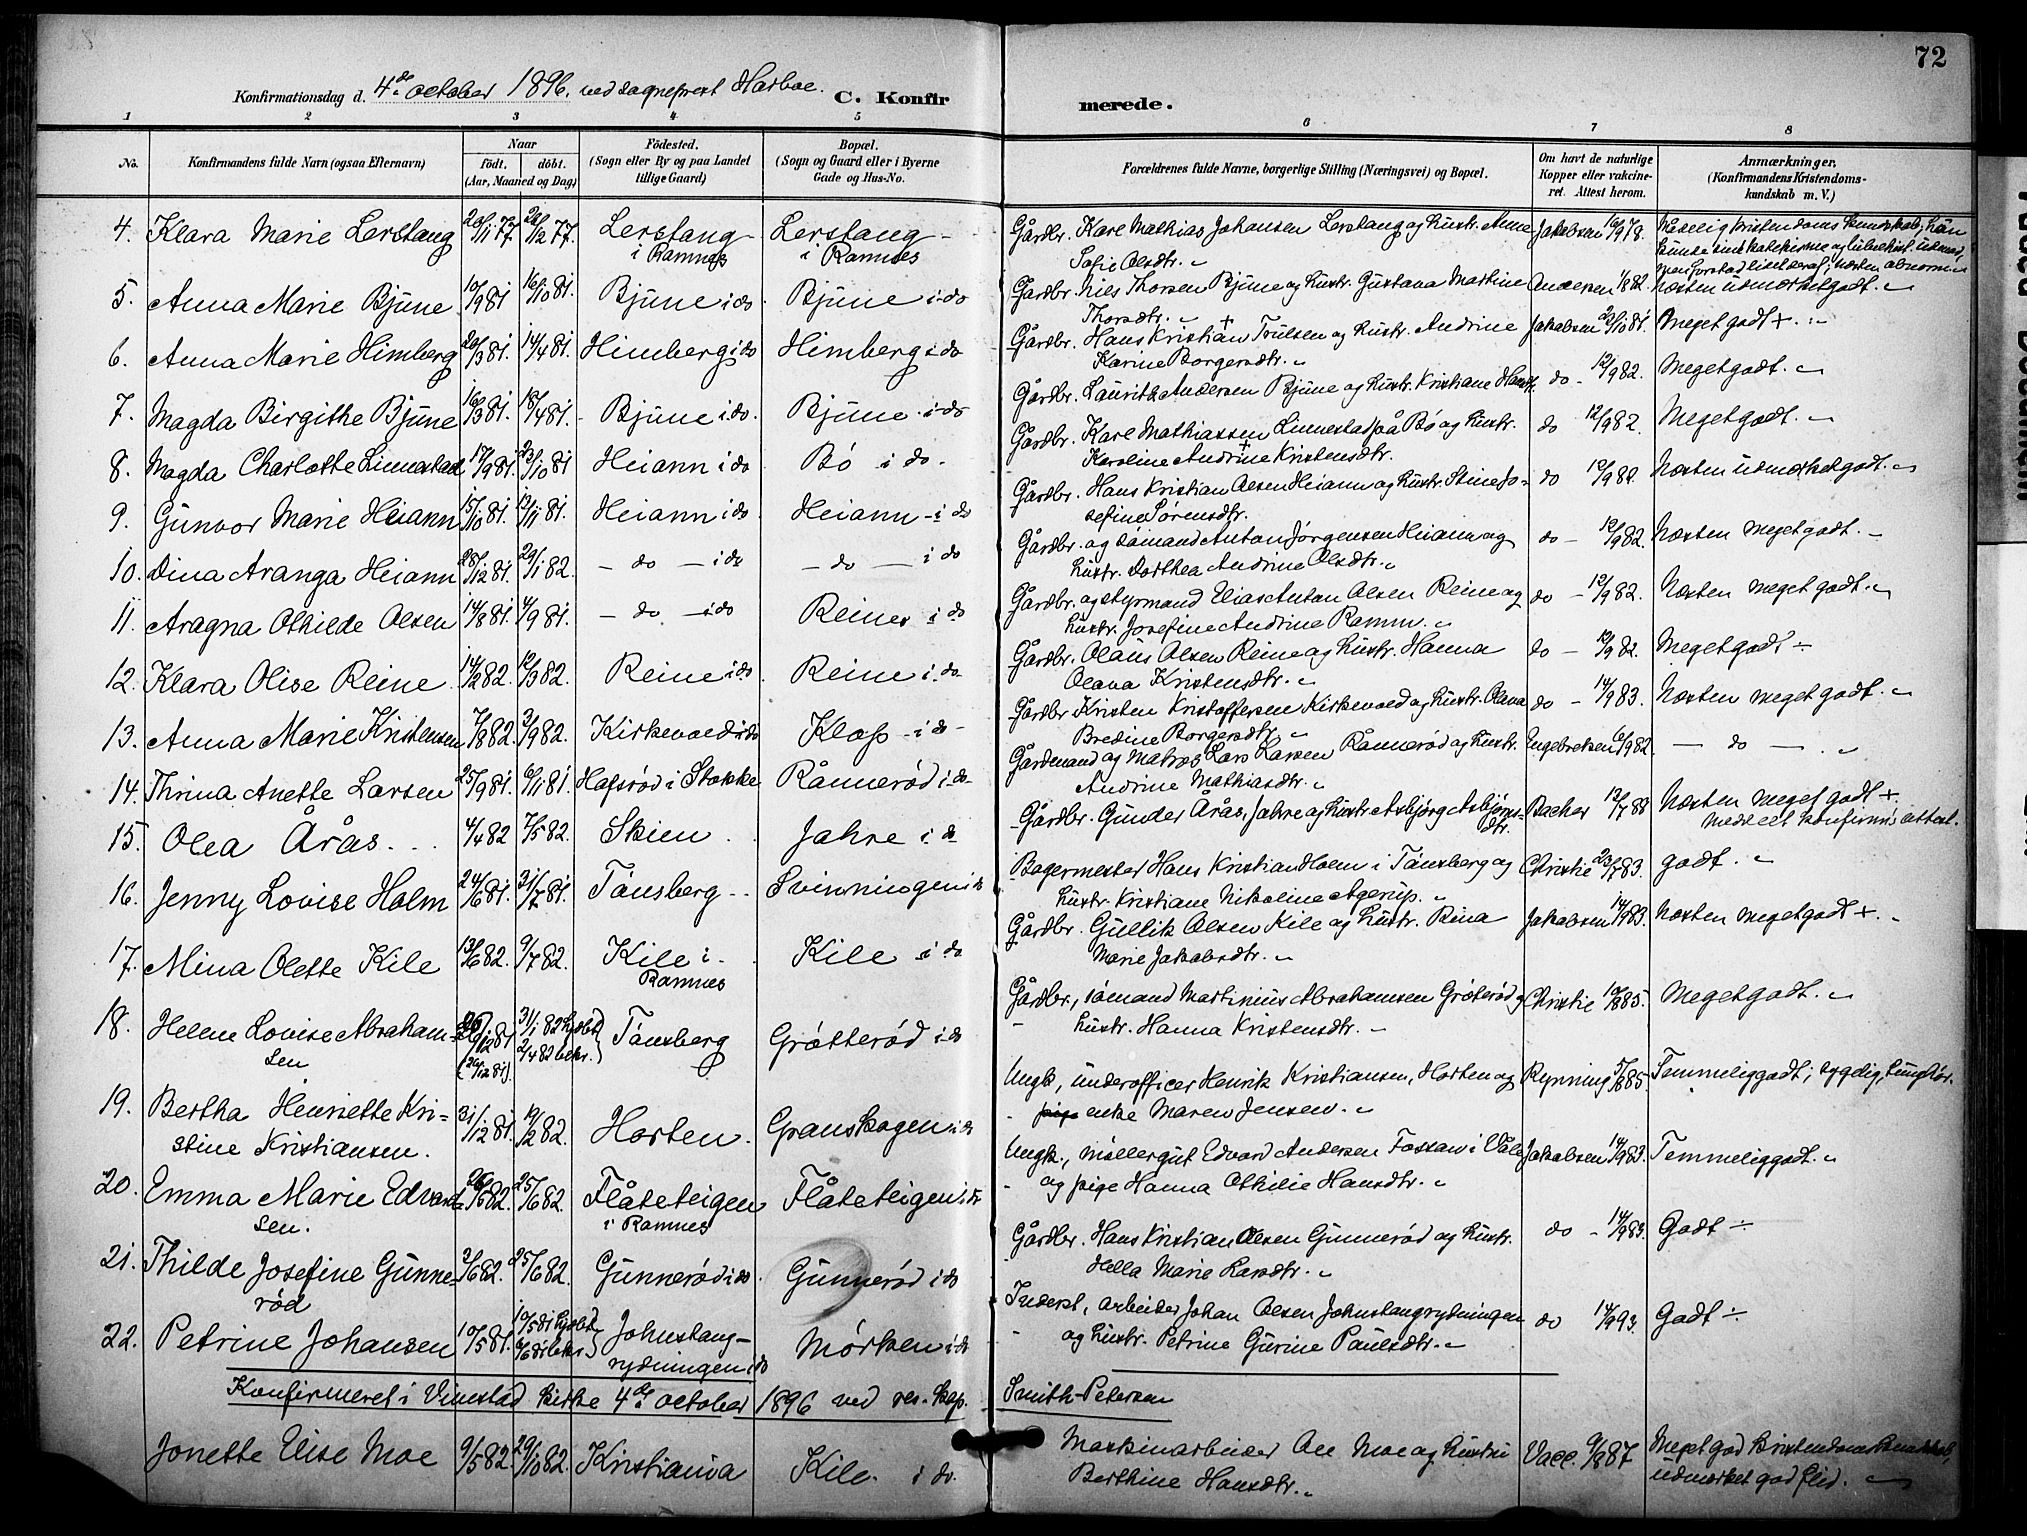 72
Konfirmationsdag d. 4de october 1896. ved sognepræst Harboe. C. Konfirmerede.
1 2 3 4 5 6 7 8
No. Konfirmandens fulde Navn (ogsaa Efternavn) Naar født. døbt. (Aar, Maaned og Dag) Födested. (Sogn eller By og paa Landet tillige Gaard) Bopæl. (Sogn og Gaard eller i Byerne Gade og Hus-No. Forældrenes fulde Navne, borgerlige Stilling (Næringsvei) og Bopæl. Om havt de naturlige Kopper eller vakcineret. Attest herom. Anmærkninger. (Konfirmandens Kristendomskundskab m. V.)
4. Klara Marie Lerstang 20/11 77. 26/12 77. Lerstang i Ramnes Lerstang i Ramnes Gårdbr. Karl Mathias Johansen Lerstang og hustr. Anne Jakobsen 16/9 78.
Sofie Olsdtr.
5. Anna Marie Bjune 10/9 81 16/10 81. Bjune i do. Bjune i do Gårdbr. Nils Thorsen Bjune og hustr. Gustava Martine Andersen 1/8 82. Næsten udmærket godt.
Thorsdtr.
6. Anna Marie Himberg 20/3 81. 14/4 81. Himberg i do Himberg i do Gårdbr. Hans Kristian Trulsen og hustr. Andrine Jakobsen 23/10 81. Meget godt +.
Karine Borgersdtr.
7. Magda Birgithe Bjune 16/3 81. 18/4 81. Bjune i do. Bjune i do Gårdbr. Lauritz Andersen Bjune og hustr. Kristiane do 12/9 82. Meget godt.
8. Magda Charlotte Linnestad 17/9 81. 23/10 81 Heiann i do Bö i do. Gårdbr. Karl Mathiassen Linnestad på Bö og hustr. do 12/9 82. Meget godt.
Karoline Andrine Kristensdtr.
9. Gunvor Marie Heiann 15/10 81. 13/11 81. Heiann i do Heiann i do Gårdbr. Hans Kristian Olsen Heiann og hustr. Stine Jo- do 12/9 82. Næsten udmærket godt.
sefine Sørensdtr.
10. Dina Aranga Heiann 28/12 81. 29/1 82. — do — i do — do — i do Gårdbr. og sømand Anton Jørgensen Heiann og do 12/9 82. Næsten meget godt.
hustr. Dorthea Andrine Olsdtr.
11. Aragna Othilde Olsen 14/8 81. 4/9 81. — do — i do Reine i do Gårdbr. og styrmand Elias Anton Olsen Reine og do 12/9 82. Næsten meget godt.
hustr. Josefine Andrine Ramm.
12. Klara Olise Reine 14/2 82. 12/3 82. Reine i do. Reine i do Gårdbr. Olaus Olsen Reine og hustr. Hanna do Meget godt ÷
Olava Kristensdtr.
13. Anna Marie Kristensen 7/8 82. 3/9 82. Kirkevold i do Klop i do Gårdbr Kristen Kristoffersen Kirkevold og hustr. Olava do 14/9 83. Næsten meget godt.
Bredine Borgersdtr
14. Thrina Anette Larsen 25/9 81. 6/11 81. Hafsrød i Stokke Rånnerød i do Gårdmand og Matros Lars Larsen Rånnerød og hustr. Engebretsen 6/9 82. — do —
Andrine Mathiasdtr.
15. Olea Årås. 4/4 82 7/5 82. Skien Jahre i do Gårdbr. Gunder Årås, Jahre og hustr Asbjørg Asbjørns- Backer 13/7 88 Næsten meget godt +.
dtr.
16. Jenny Lovise Holm 24/6 81. 31/7 81. Tönsberg Svinningen i do Bagermester Hans Kristian Holm i Tönsberg og Christie 23/7 83. godt.
hustr. Kristiane Nikoline Agerup.
17. Mina Olette Kile 13/6 82. 9/7 82. Kile i Ramnes Kile i do Gårdbr. Gullik Olsen Kile og hustr. Rina Jakobsen 14/9 83. Næsten meget godt +.
Marie Jakobsdtr.
18. Helene Lovise Abrahamsen (26/12 81). 31/1 82 hjdbt 2/4 82 bekr. Tönsberg Gröterød i do Gårdbr., sömand Martinius Abrahamsen Gröterød og Christie 10/8 85. Meget godt.
hustr. Hanna Kristensdtr.
19. Bertha Henriette Kristine Kristiansen. 31/12 81. 19/2 82. Horten. Granskogen i do Ungk., underofficer Henrik Kristiansen, Horten og Rynning 5/8 85. Temmelig godt; sygelig, tunghør.
enke Maren Jensen.
20. Emma Marie Edvardsen. 26/5 82. 25/6 82. Flåteteigen i Ramnes Flåteteigen i do Ungk., möllergut Edvard Andersen Fossan i Våle Jakobsen 14/9 83. Temmelig godt.
og pige Hanna Othilie Hansdtr.
21. Thilde Josefine Gunnerød 3/6 82. 25/6 82. Gunnerød i do. Gunnerød i do Gårdbr. Hans Kristian Olsen Gunnerød og hustr. do 14/9 83. Godt ÷
Hella Marie Larsdtr.
22. Petrine Johansen 10/5 81. 10/5 81 hjdbt Johnstangrydningen i do Mörken i do Inderst, arbeider Johan Olsen Johnstangrydningen do 14/9 93. Godt ÷.
og hustr. Petrine Gurine Paulsdtr.
Konfirmeret i Vivestad kirke 4de october 1896 ved res. kap. Smith-Petersen
Jonette Elise Moe 9/5 82. 29/10 82. Kristiania Kile i do. Maskinarbeider Ole Moe og hustru Vacc. 9/8 87 Meget god Kristendomskundskab,
Berthine Hansdtr. udmærket god flid.